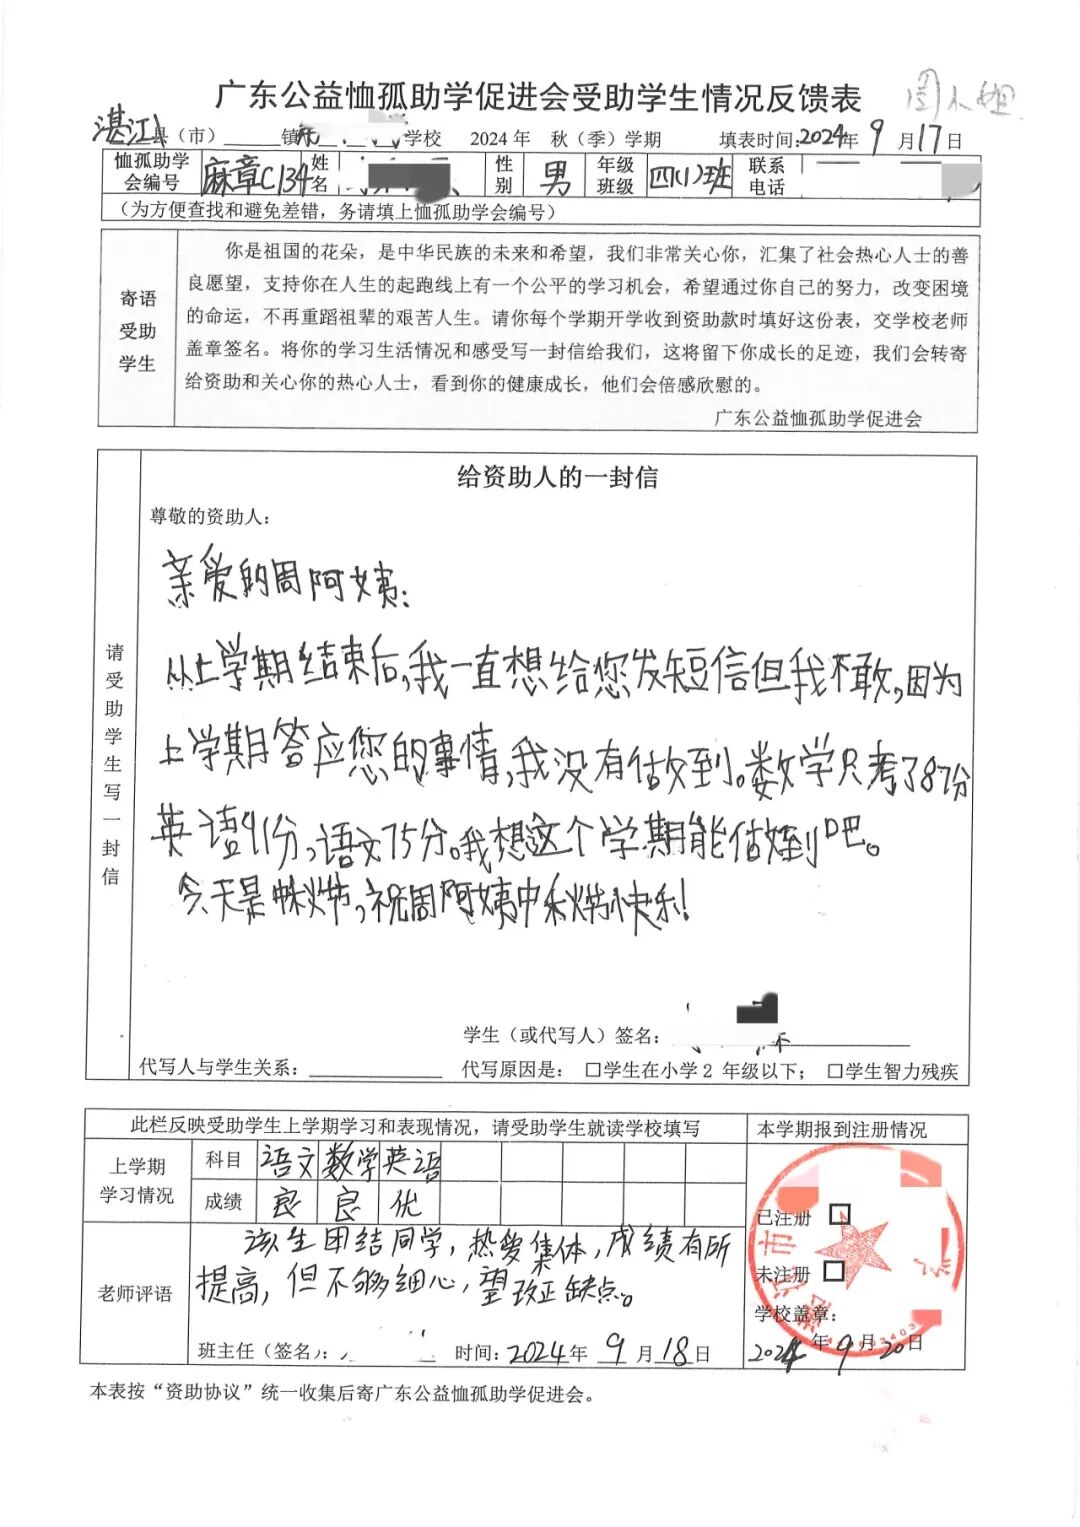 广东公益恤孤助学促进会受助学生情况反馈表
周大姐
湛江县（市）______镇 学校 2024年 秋（季）学期 填表时间:2024年9月17日
恤孤助学会编号 麻章C134 姓名 性别 男 年级班级 四(1)班 联系电话
（为方便查找和避免差错，务请填上恤孤助学会编号）
寄语受助学生
你是祖国的花朵，是中华民族的未来和希望，我们非常关心你，汇集了社会热心人士的善
良愿望，支持你在人生的起跑线上有一个公平的学习机会，希望通过你自己的努力，改变困境
的命运，不再重蹈祖辈的艰苦人生。请你每个学期开学收到资助款时填好这份表，交学校老师
盖章签名。将你的学习生活情况和感受写一封信给我们，这将留下你成长的足迹，我们会转寄
给资助和关心你的热心人士，看到你的健康成长，他们会倍感欣慰的。
广东公益恤孤助学促进会
请受助学生写一封信
给资助人的一封信
尊敬的资助人：
亲爱的周阿姨：
从上学期结束后，我一直想给您发短信但我不敢，因为
上学期答应您的事情，我没有做到。数学只考了87分
英语91分，语文75分。我想这个学期能做到吧。
今天是中秋节，祝周阿姨中秋节快乐！
学生（或代写人）签名：
代写人与学生关系：____________ 代写原因是： □学生在小学2 年级以下； □学生智力残疾
此栏反映受助学生上学期学习和表现情况，请受助学生就读学校填写 本学期报到注册情况
上学期学习情况
科目 语文 数学 英语
成绩 良 良 优
已注册 □
未注册 □
学校盖章：
2024年9月20日
老师评语
该生团结同学，热爱集体，成绩有所
提高，但不够细心，望改正缺点。
班主任（签名）： 时间：2024年 9 月 18 日
本表按“资助协议”统一收集后寄广东公益恤孤助学促进会。